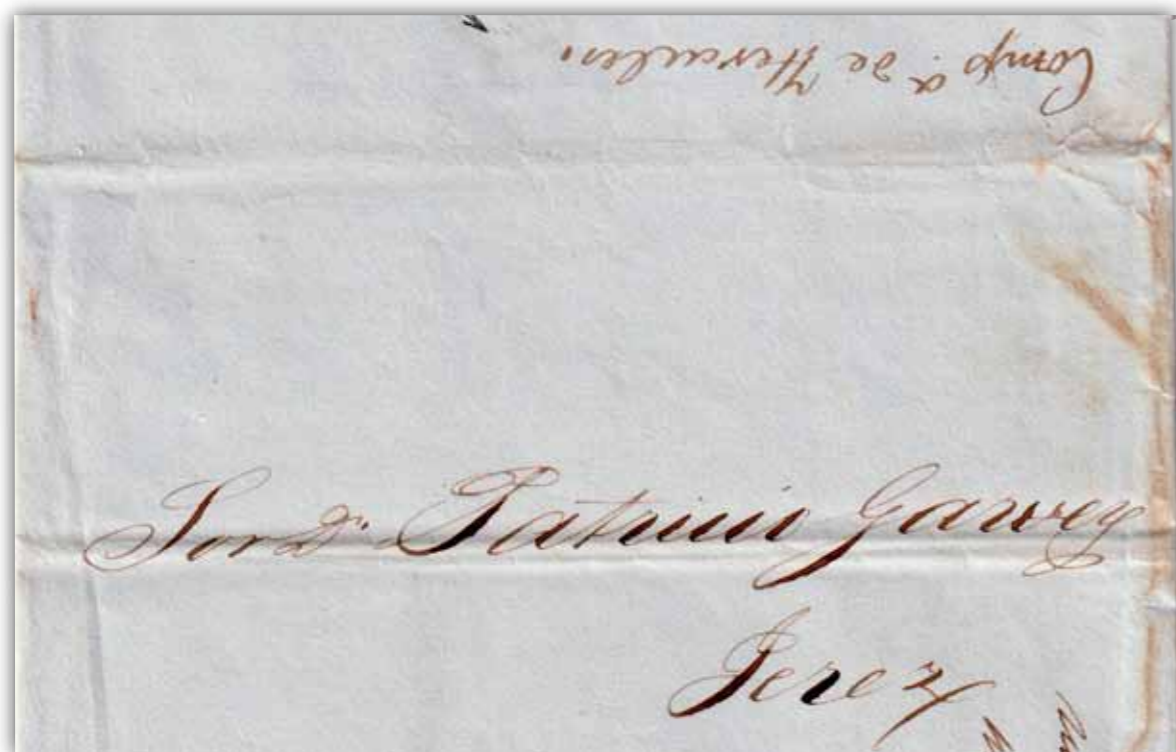 Comp.ª de Hercules
Sor D.n Patricio Garvey
Jerez